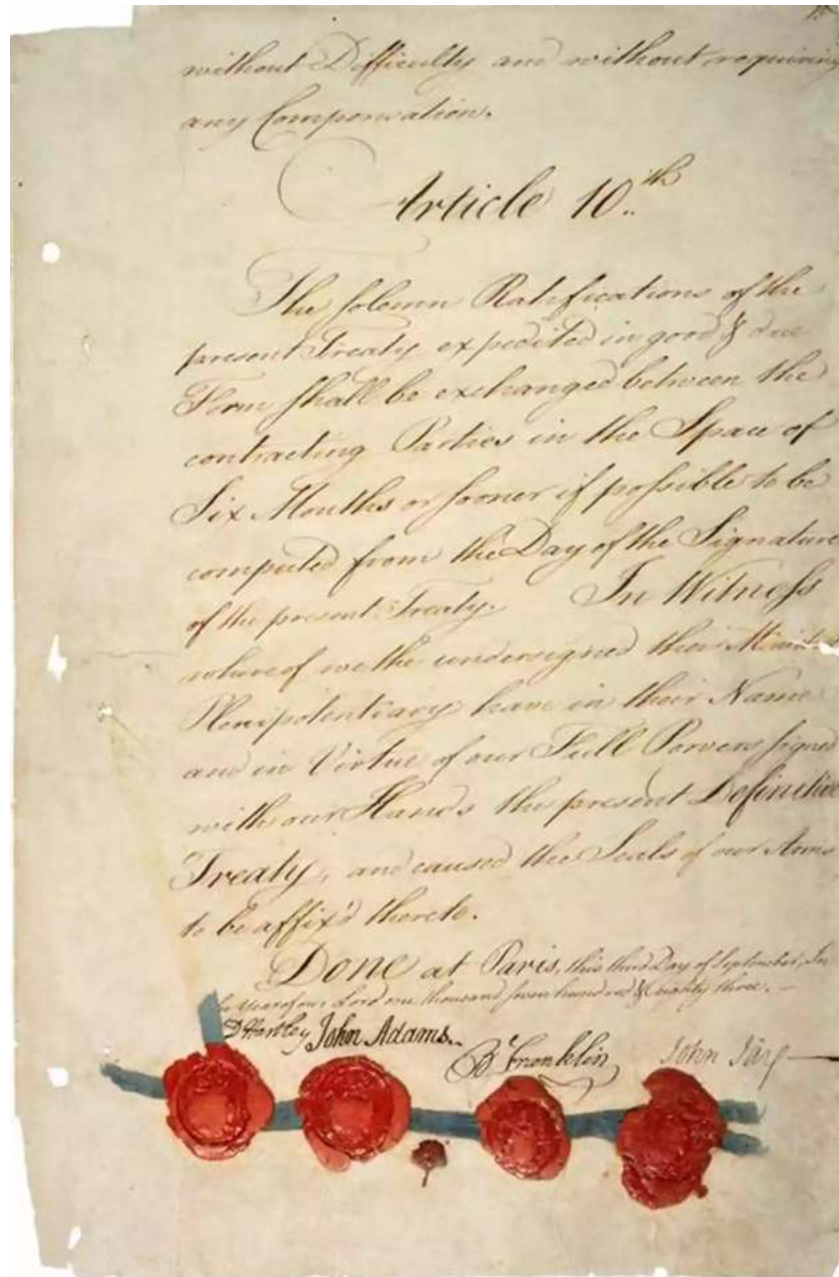 15
without Difficulty and without requiring
any Compensation.
Article 10.th
The solemn Ratifications of the
present Treaty expedited in good & due
Form shall be exchanged between the
contracting Parties in the Space of
Six Months or sooner if possible to be
computed from the Day of the Signature
of the present Treaty. In Witness
whereof we the undersigned their
Plenipotentiary have in their Name
and in Virtue of our Full Powers signed
with our Hands the present Definitive
Treaty, and caused the Seals of our Arms
to be affix'd thereto.
Done at Paris, this third Day of September, In
the Year of our Lord one thousand seven hundred & eighty three.
D Hartley John Adams. B Franklin John Jay